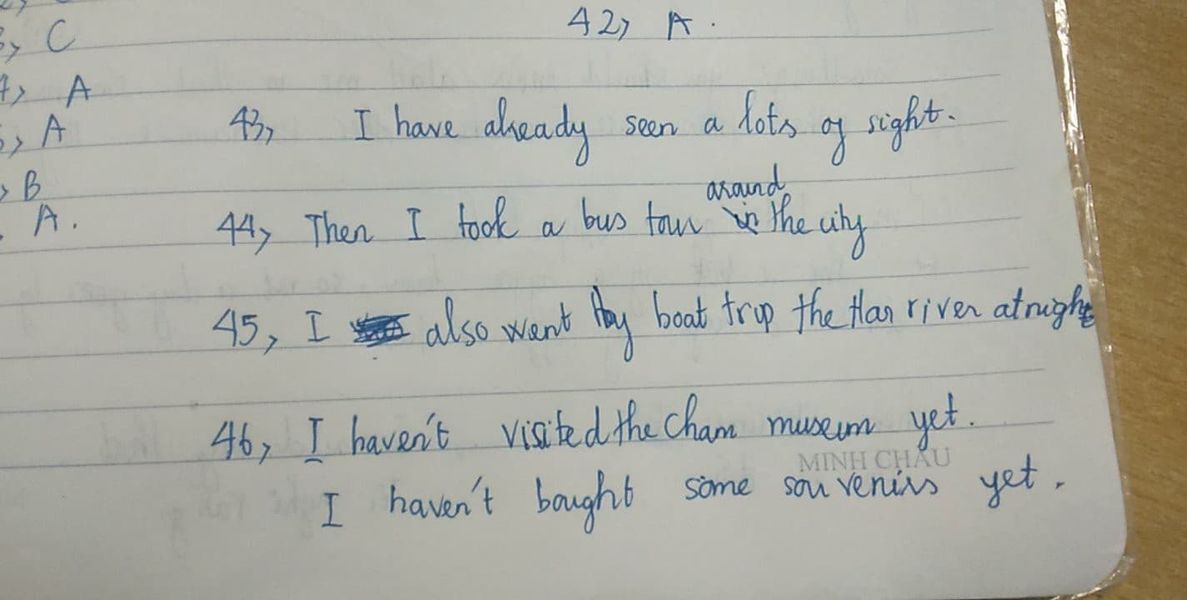 C
42, A.
A
43, I have already seen a lots of sight.
A
B
around
A.
44, Then I took a bus tour in the city
45, I also went by boat trip the Han river at night
46, I haven't visited the Cham museum yet.
MINH CHÂU
I haven't bought some souvenirs yet.